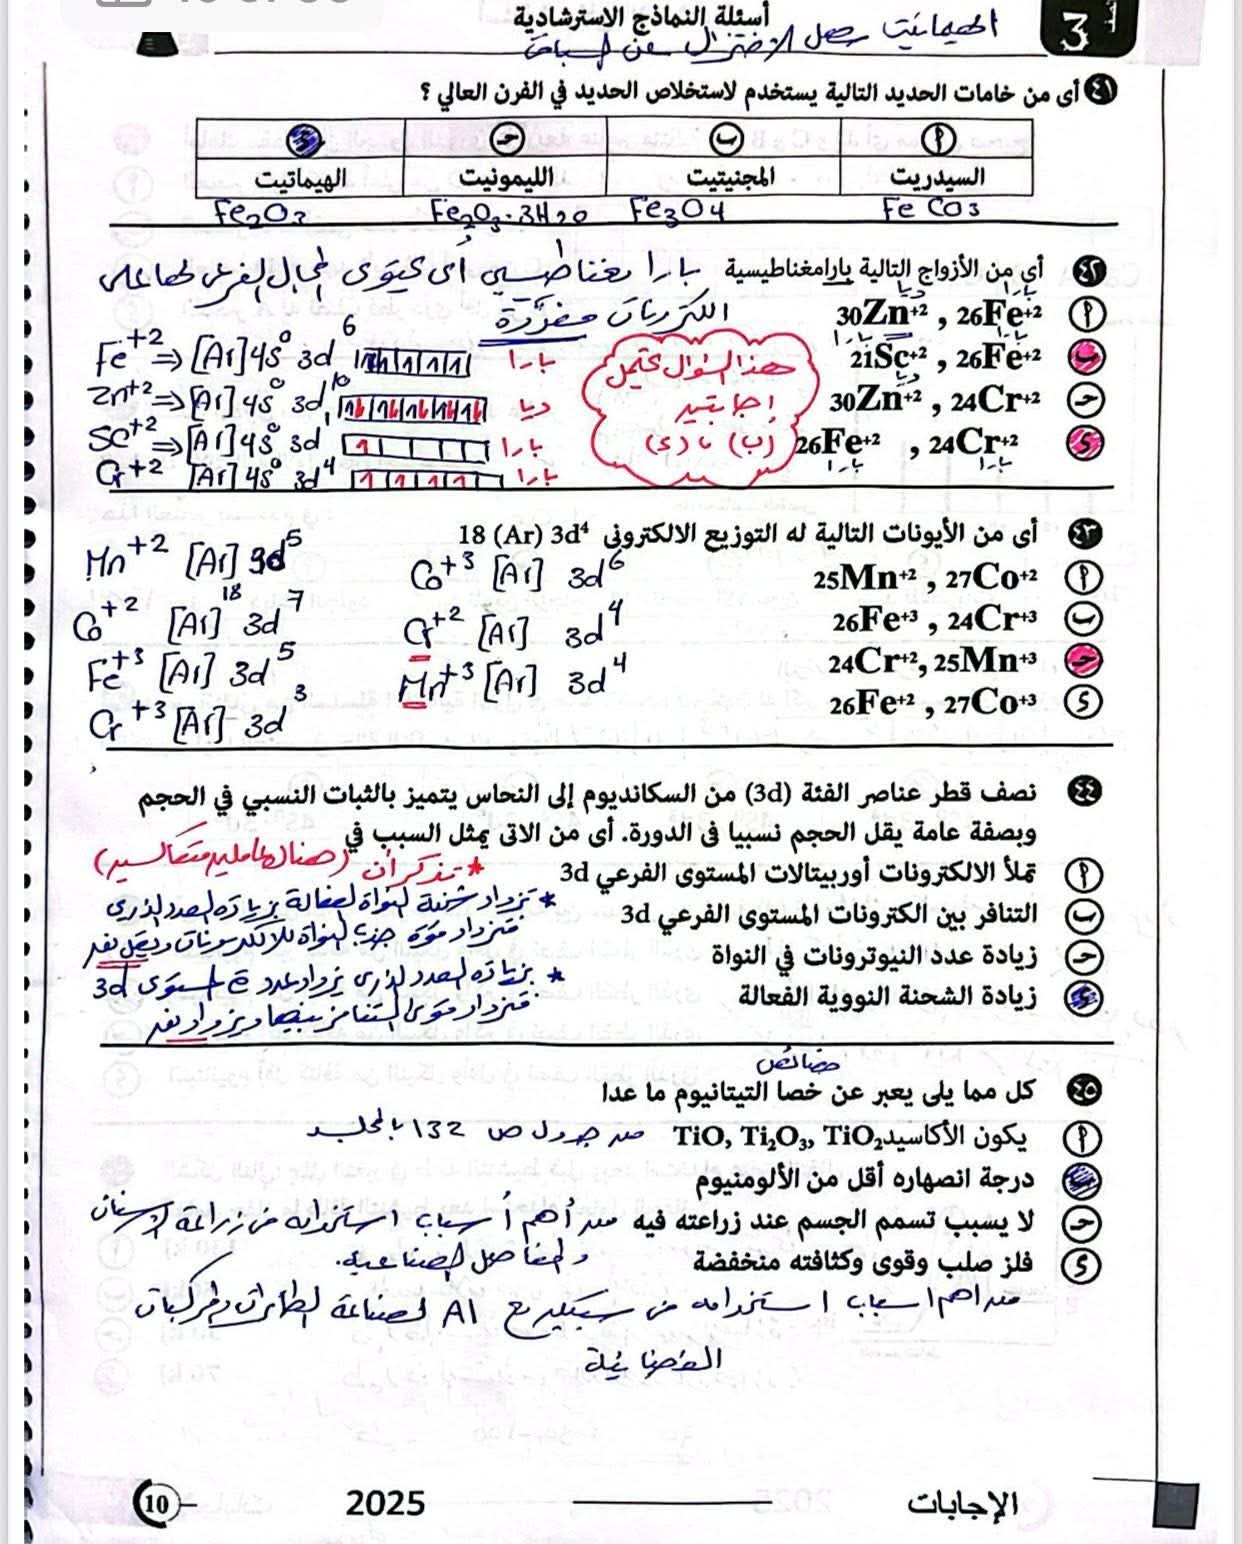 أسئلة النماذج الاسترشادية
الهيماتيت سهل الاختزال عن السابق
٤١ أى من خامات الحديد التالية يستخدم لاستخلاص الحديد في الفرن العالي ؟
أ ب حـ د
السيدريت المجنيتيت الليمونيت الهيماتيت
FeCO3 Fe3O4 Fe2O3.3H2O Fe2O3
٤٢ أي من الأزواج التالية بارامغناطيسية
بارا مغناطيسي أى يحتوى المجال الفرعى لها على
الكترونات مفردة
أ 30Zn+2 , 26Fe+2
ب 21Sc+2 , 26Fe+2
حـ 30Zn+2 , 24Cr+2
د 26Fe+2 , 24Cr+2
هذا السؤال يحتمل
إجابتين
(ب) ، (د)
Fe+2 ⇒ [Ar] 4s0 3d6 بارا
Zn+2 ⇒ [Ar] 4s0 3d10 ديا
Sc+2 ⇒ [Ar] 4s0 3d1 بارا
Cr+2 [Ar] 4s0 3d4 بارا
٤٣ أى من الأيونات التالية له التوزيع الالكترونى 18 (Ar) 3d4
أ 25Mn+2 , 27Co+2
ب 26Fe+3 , 24Cr+3
حـ 24Cr+2, 25Mn+3
د 26Fe+2 , 27Co+3
Mn+2 [Ar] 3d5
Co+2 [Ar]18 3d7
Fe+3 [Ar] 3d5
Cr+3 [Ar] 3d3
Co+3 [Ar] 3d6
Cr+2 [Ar] 3d4
Mn+3 [Ar] 3d4
٤٤ نصف قطر عناصر الفئة (3d) من السكانديوم إلى النحاس يتميز بالثبات النسبي في الحجم
وبصفة عامة يقل الحجم نسبيا فى الدورة. أى من الاتى يمثل السبب في
أ تملأ الالكترونات أوربيتالات المستوى الفرعي 3d
ب التنافر بين الكترونات المستوى الفرعي 3d
حـ زيادة عدد النيوترونات في النواة
د زيادة الشحنة النووية الفعالة
* تذكر أن (هناك عاملين متعاكسين)
* تزداد شحنة النواة الفعالة بزيادة العدد الذرى
فتزداد قوة جذب النواة للالكترونات ويقل نق
* بزيادة العدد الذرى يزداد عدد e المستوى 3d
فتزداد قوى التنافر بينها ويزداد نق
٤٥ كل مما يلى يعبر عن خصا التيتانيوم ما عدا
خصائص
أ يكون الأكاسيد TiO, Ti2O3, TiO2 من جدول ص 132 بالمجلد
ب درجة انصهاره أقل من الألومنيوم
حـ لا يسبب تسمم الجسم عند زراعته فيه من أهم أسباب استخدامه فى زراعة الاسنان
والمفاصل الصناعية.
د فلز صلب وقوى وكثافته منخفضة
من اهم اسباب استخدامه فى سبيكة مع Al لصناعة الطائرات والمركبات
الفضائية
10 2025 الإجابات